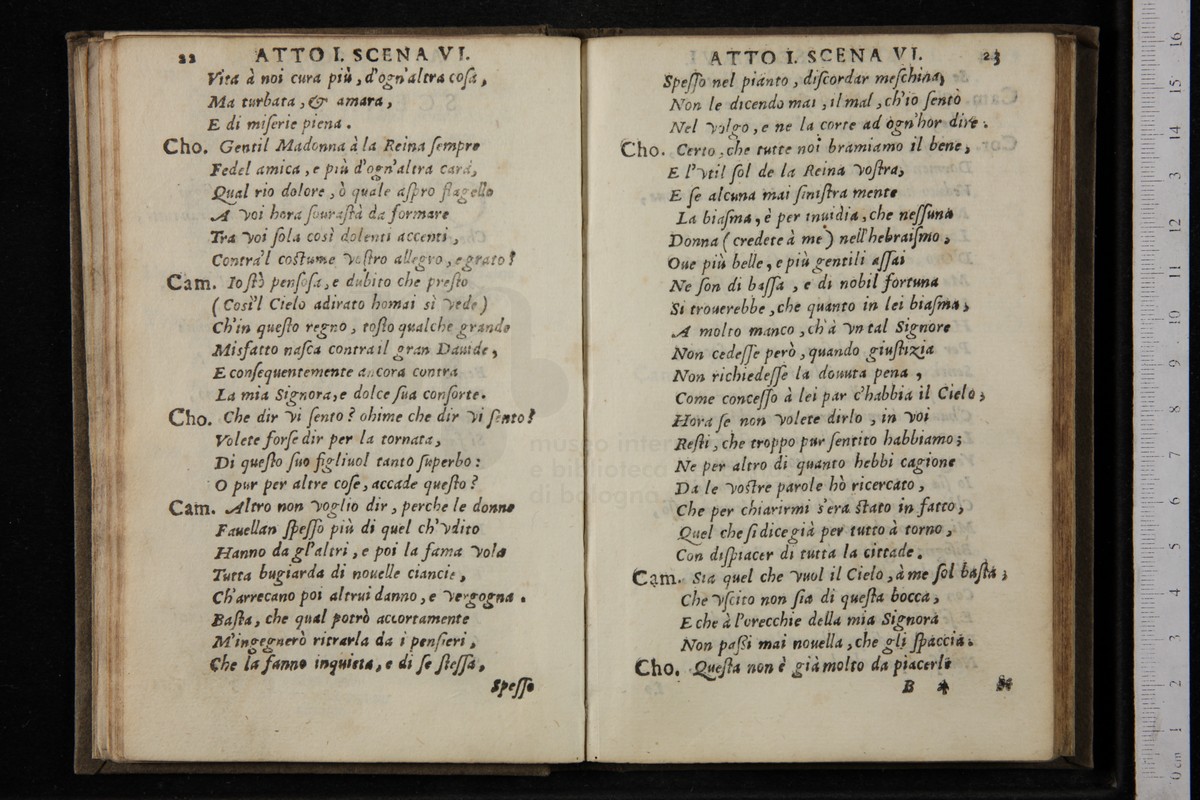 22 ATTO I. SCENA VI.
Vita à noi cura più, d'ogn'altra coſa,
Ma turbata, & amara,
E di miſerie piena.
Cho. Gentil Madonna à la Reina ſempre
Fedel amica, e più d'ogn'altra cara,
Qual rio dolore, ò quale aſpro flagello
A voi hora ſouraſtà da formare
Tra voi ſola così dolenti accenti,
Contra'l coſtume voſtro allegro, e grato?
Cam. Io ſtò penſoſa, e dubito che preſto
(Coſi'l Cielo adirato homai sì vede)
Ch'in queſto regno, toſto qualche grande
Misfatto naſca contra il gran Dauide,
E conſequentemente ancora contra
La mia Signora, e dolce ſua conſorte.
Cho. Che dir vi ſento? ohime che dir vi ſento?
Volete forſe dir per la tornata,
Di queſto ſuo figliuol tanto ſuperbo:
O pur per altre coſe, accade queſto?
Cam. Altro non voglio dir, perche le donne
Fauellan ſpeſſo più di quel ch'vdito
Hanno da gl'altri, e poi la fama vola
Tutta bugiarda di nouelle ciancie,
Ch'arrecano poi altrui danno, e vergogna.
Baſta, che qual potrò accortamente
M'ingegnerò ritrarla da i penſieri,
Che la fanno inquieta, e di ſe ſteſſa,
Speſſo
ATTO I. SCENA VI. 23
Speſſo nel pianto, diſcordar meſchina,
Non le dicendo mai, il mal, ch'io ſento
Nel volgo, e ne la corte ad ogn'hor dire.
Cho. Certo, che tutte noi bramiamo il bene,
E l'vtil ſol de la Reina voſtra,
E ſe alcuna mai ſiniſtra mente
La biaſma, è per inuidia, che neſſuna
Donna (credete à me) nell'hebraiſmo,
Oue più belle, e più gentili aſſai
Ne ſon di baſſa, e di nobil fortuna
Si trouerebbe, che quanto in lei biaſma,
A molto manco, ch'à vn tal Signore
Non cedeſſe però, quando giuſtizia
Non richiedeſſe la douuta pena,
Come conceſſo à lei par c'habbia il Cielo;
Hora ſe non volete dirlo, in voi
Reſti, che troppo pur ſentito habbiamo;
Ne per altro di quanto hebbi cagione
Da le voſtre parole hò ricercato,
Che per chiarirmi s'era ſtato in fatto,
Quel che ſi dice già per tutto à torno,
Con diſpiacer di tutta la cittade.
Cam. Sia quel che vuol il Cielo, à me ſol baſta;
Che vſcito non ſia di queſta bocca,
E che à l'orecchie della mia Signora
Non paßi mai nouella, che gli ſpaccia.
Cho. Queſta non è già molto da piacerle
B